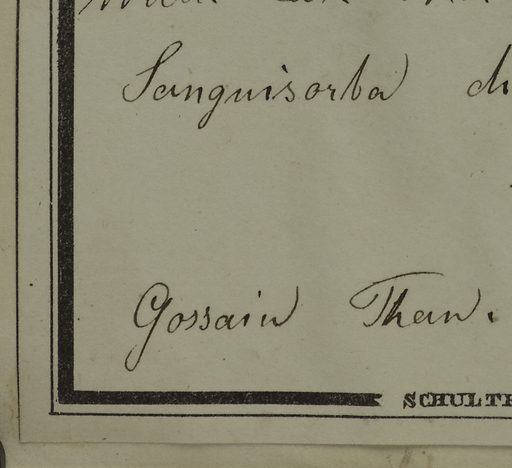 Sanguisorba di
Gossain Than.
SCHULTE